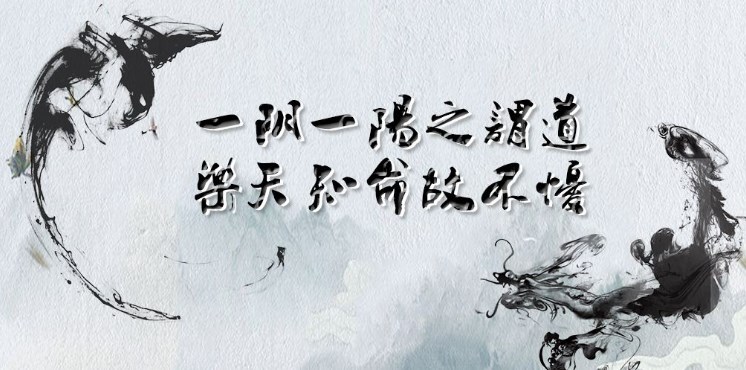 一阴一陽之謂道
樂天知命故不憂